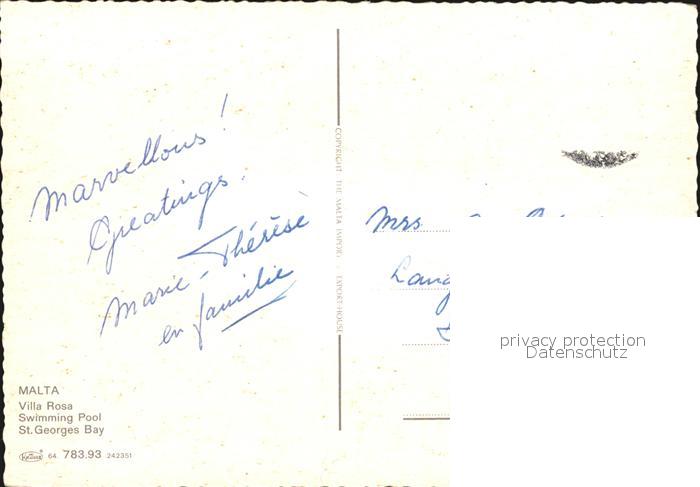 Marvellous!
Greatings.
Marie-Thérèse
en famille
MALTA
Villa Rosa
Swimming Pool
St. Georges Bay
64. 783.93 242351
COPYRIGHT THE MALTA IMPORT - EXPORT HOUSE
Mrs
privacy protection
Datenschutz